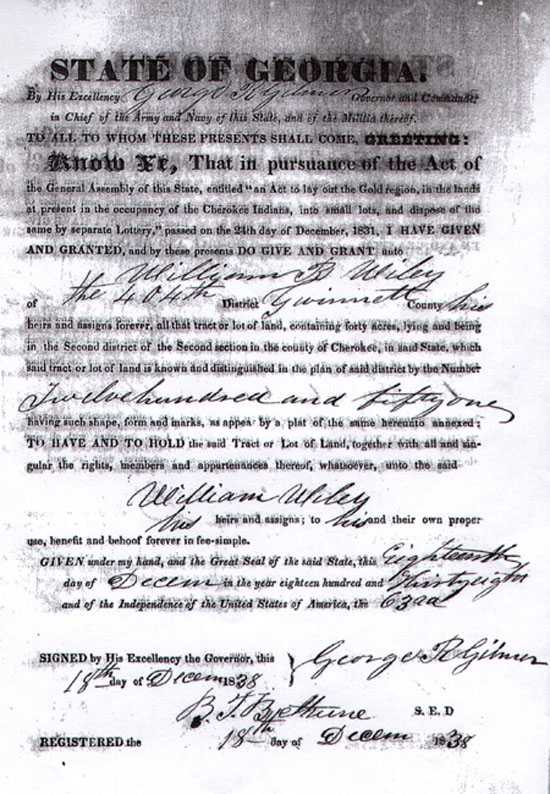 STATE OF GEORGIA.
By His Excellency George R Gilmer Governor and Commander
in Chief of the Army and Navy of this State, and of the Militia thereof.
TO ALL TO WHOM THESE PRESENTS SHALL COME, GREETING:
Know Ye, That in pursuance of the Act of
the General Assembly of this State, entitled "an Act to lay out the Gold region, in the lands
at present in the occupancy of the Cherokee Indians, into small lots, and dispose of the
same by separate Lottery," passed on the 24th day of December, 1831, I HAVE GIVEN
AND GRANTED, and by these presents DO GIVE AND GRANT unto
William B Wiley
of the 404th District Gwinnett County his
heirs and assigns forever, all that tract or lot of land, containing forty acres, lying and being
in the Second district of the Second section in the county of Cherokee, in said State, which
said tract or lot of land is known and distinguished in the plan of said district by the Number
Twelve hundred and fifty one
having such shape, form and marks, as appear by a plat of the same hereunto annexed:
TO HAVE AND TO HOLD the said Tract or Lot of Land, together with all and sin-
gular the rights, members and appurtenances thereof, whatsoever, unto the said
William Wiley
his heirs and assigns; to his and their own proper
use, benefit and behoof forever in fee-simple.
GIVEN under my hand, and the Great Seal of the said State, this Eighteenth
day of Decem in the year eighteen hundred and Thirty eight
and of the Independence of the United States of America, the 63rd
SIGNED by His Excellency the Governor, this
18th day of Decem 1838
George R Gilmer
B. T. Bethune S. E. D
REGISTERED the 18th day of Decem 1838